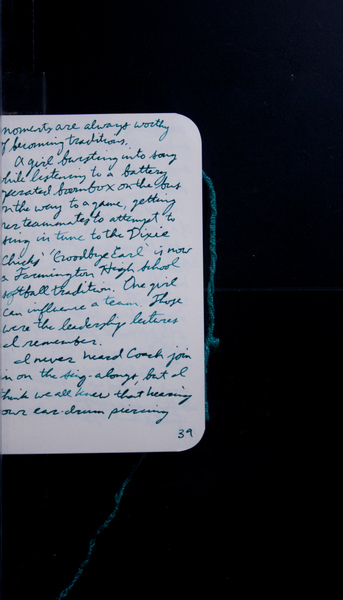 moments are always worthy
f becoming traditions.
A girl bursting into song
while listening to a battery
operated boombox on the bus
on the way to a game, getting
her teammates to attempt to
sing in tune to the Dixie
Chicks' 'Goodbye Earl' is now
a Farmington High School
softball tradition. One girl
can influence a team. Those
were the leadership lectures
I remember.
I never heard Coach join
in on the sing-alongs, but I
think we all knew that hearing
our ear-drum piercing
39